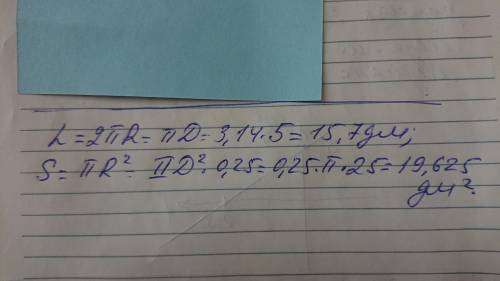 L = 2πR = πD = 3,14·5 = 15,7 дм;
S = πR² = πD²·0,25 = 0,25·π·25 = 19,625
дм².